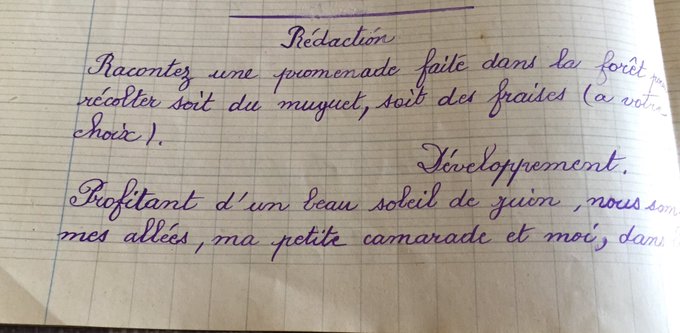 Rédaction
Racontez une promenade faite dans la forêt pour
récolter soit du muguet, soit des fraises (a votre
choix).
Développement.
Profitant d'un beau soleil de juin, nous som
mes allées, ma petite camarade et moi, dans